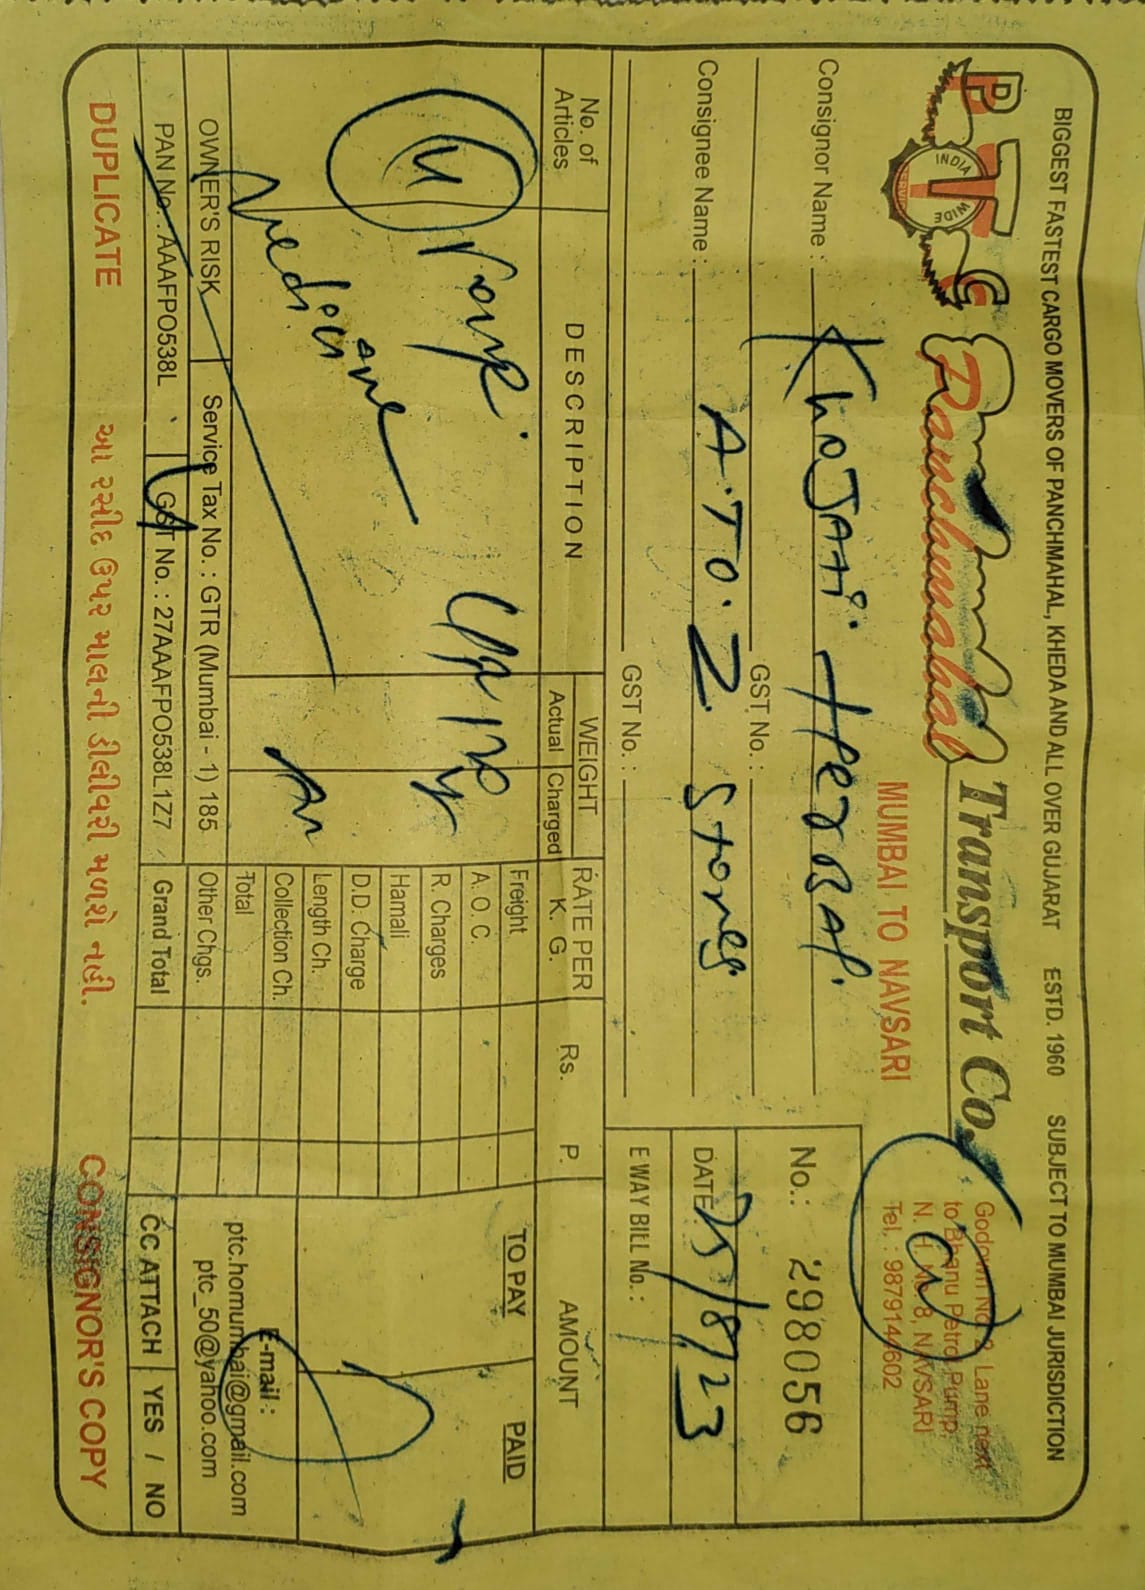 BIGGEST FASTEST CARGO MOVERS OF PANCHMAHAL, KHEDA AND ALL OVER GUJARAT ESTD. 1960 SUBJECT TO MUMBAI JURISDICTION
PTC
INDIA WIDE SERVICE
Panchmahaal Transport Co.
MUMBAI TO NAVSARI
Godown No. 2, Lane next
to Bhanu Petrol Pump,
N. H. No. 8, NAVSARI
Tel. : 9879144602
Consignor Name : KhoJAAi HerBAl
GST No. :
Consignee Name : A. TO. Z Stores
GST No. :
No.: 298056
DATE: 25/8/23
E WAY BILL No. :
No. of Articles
DESCRIPTION
WEIGHT
Actual Charged
RATE PER K. G.
Rs. P.
AMOUNT
TO PAY PAID
Medicine
Freight
A. O. C.
R. Charges
Hamali
D.D. Charge
Length Ch.
Collection Ch.
Total
Other Chgs.
Grand Total
OWNER'S RISK
Service Tax No. : GTR (Mumbai - 1) 185
PAN No. : AAAFPO538L
GST No. : 27AAAFPO538L1Z7
E-mail :
ptc.homumbai@gmail.com
ptc_50@yahoo.com
CC ATTACH YES / NO
DUPLICATE
આ રસીદ ઉપર માલની ડીલીવરી મળશે નહી.
CONSIGNOR'S COPY